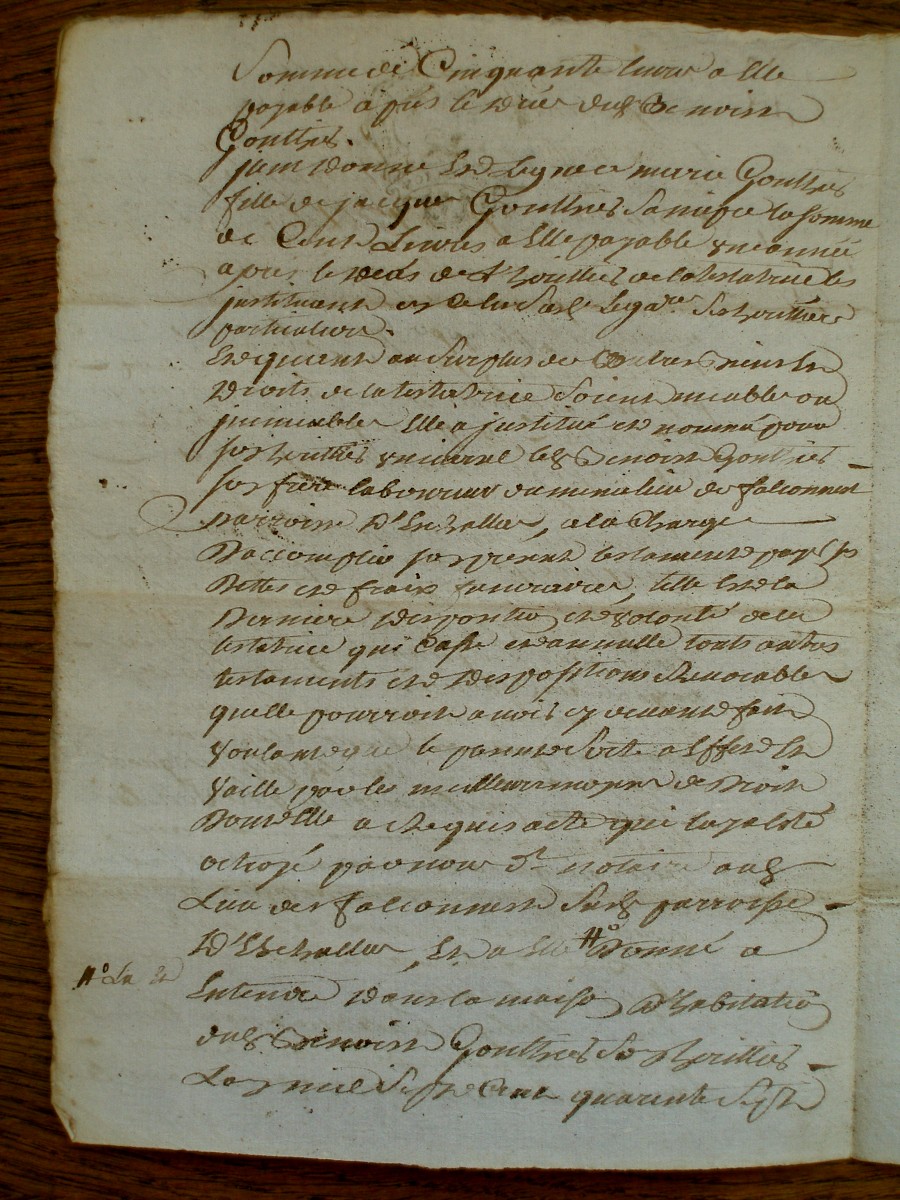 Somme de Cinquante livres a Elle
payable apres le deces dud Benoist
Gonthier.
Jtem donne Et Legue a marie Gonthier
fille de jacques Gonthier Sa niepce la Somme
de Cent Livres a Elle payable une année
apres le deces de l'heritier de la testatrice les
justituant et Ses heritiers
particuliers.
Et quant au Surplus des autres biens Et
Droits de la testatrice Soient meubles ou
jmmeubles Elle a jnstitué et nommé pour
son heritier universel led Benoist Gonthier
son frere laboureur du lieu de falconnet
parroisse D'Eschallas, a la Charge
D'accomplir son present testament payer ses
Dettes et fraix funeraires, telle Est la
Derniere disposition et volonté de la
testatrice qui Casse et annulle touts autres
testaments et dispositions revocables
quelle pourroit avoir cy devant fait
voulant que le present Sorte a Effet Et
Vaille par les meilleurs moyens de Droit
Dont Elle a requis acte qui luy a esté
octroyé par nous dt notaire aud
Lieu de falconnet Susd parroisse
D'Eschallas, Et a Elle # Donné a
# Lu Et
Entendre dans la maison d'habitation
dud Benoist Gonthier Sd heritier
L'an mil Sept Cent quarente Sept